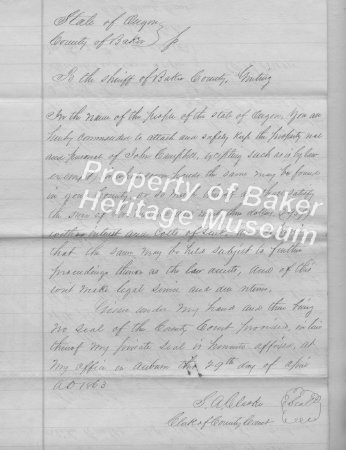 State of Oregon
County of Baker } ss
To the sheriff of Baker County, Greeting
In the name of the People of the state of Oregon, You are
hereby commanded to attach and safely keep the property real
and personal of John Campbell, excepting such as is by law
exempt the same may be found
in your County or so much as
the sum of dollars
with interest and costs of suit
that the same may be held subject to further
proceedings therein as the law directs, and of this
writ make legal service and due return.
Given under my hand and there being
no seal of the County Court provided, in lieu
thereof my private seal is hereunto affixed, at
My office in Auburn this 29th day of April
AD 1863
S. A. Clarke Seal
Clerk of County Court
Property of Baker
Heritage Museum